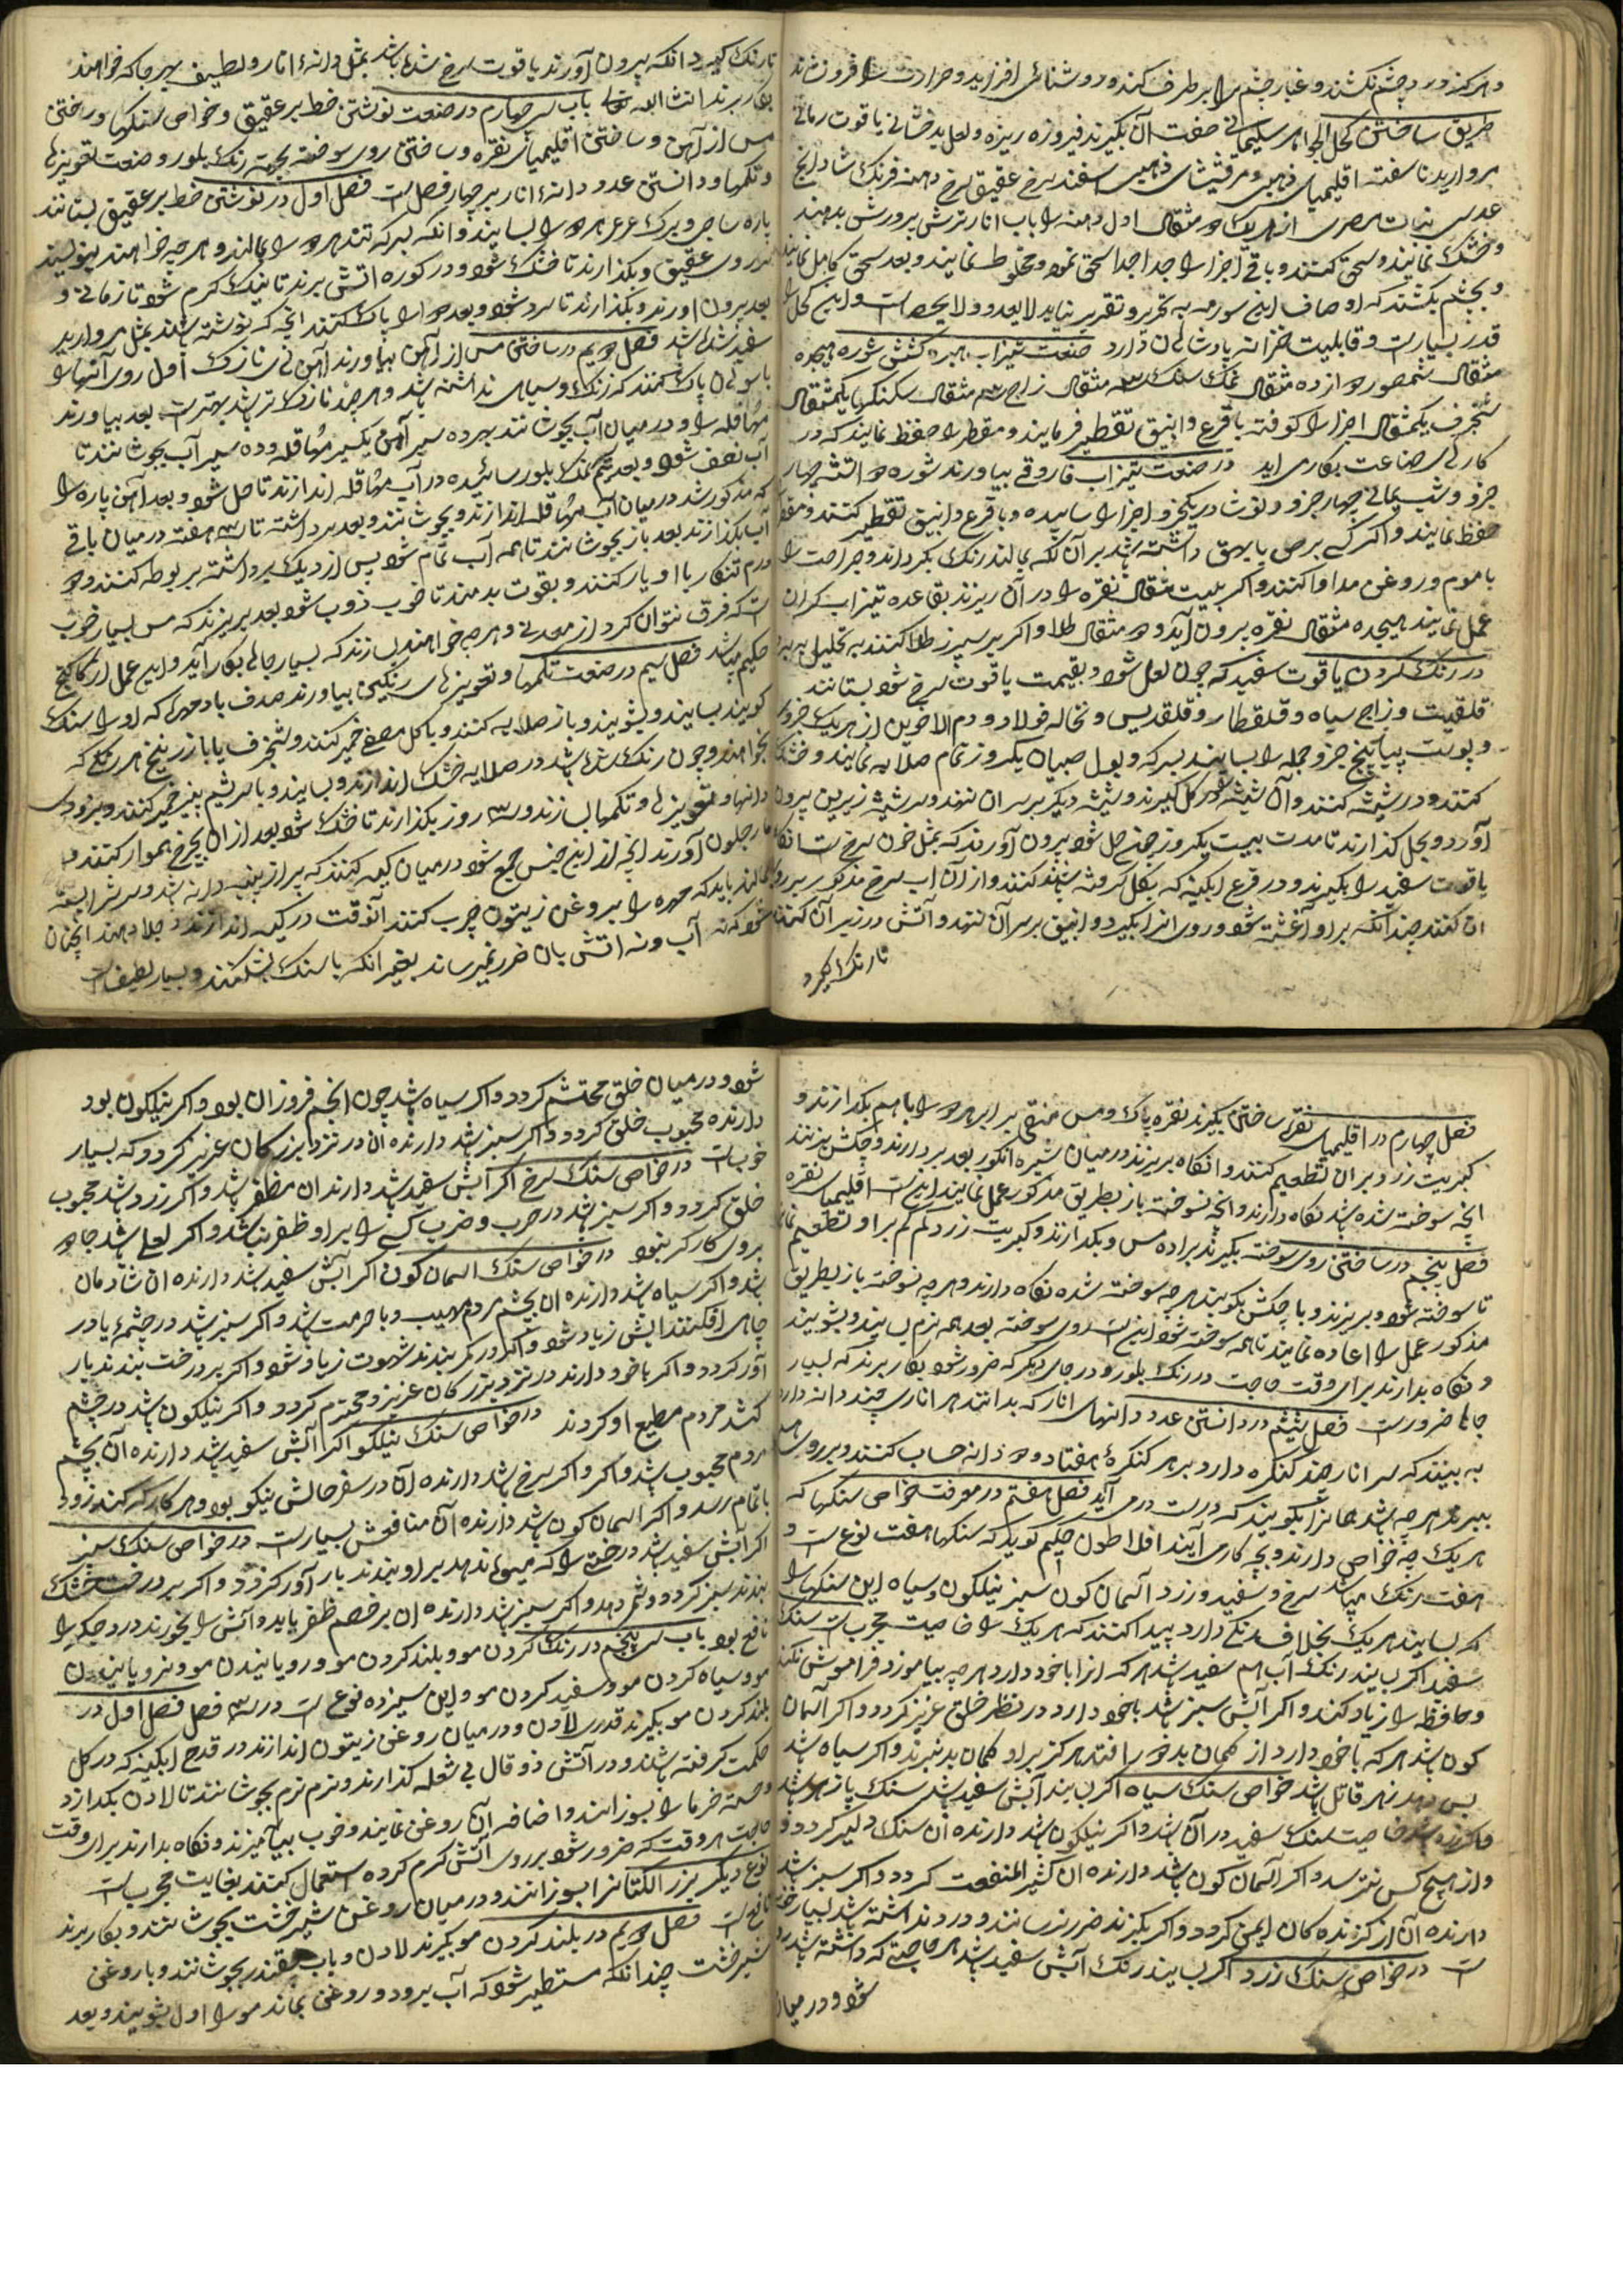 و هر که در چشم نکشند و غبار چشم را بر طرف کند و روشنائی افزاید و حرارت را فرو نشاند
طریق ساختن کحل الجواهر سلیمانی صفت آن بگیرند فیروزه ریزه و لعل بدخشانی یاقوت رمانی
مروارید ناسفته اقلیمیای ذهبی و مرقشیشای ذهبی اسفند سرخ عقیق سرخ دهنه فرنک شادانج
عدسی نبات مصری از هر یک دو مثقال اول دهنه را باب انار ترش پرورش بدهند
و خشک نمایند و سحق کنند و باقی اجزا را جدا جدا سحق نموده مخلوط نمایند و بعد سحق کامل نمایند
و بچشم بکشند که اوصاف این سورمه به تحریر و تقریر نیاید لایعد و ولایحصی است و این کحل را
قدر بسیار است و قابلیت خزانه پادشاهان دارد صنعت تیزاب شوره
مثقال دوازده مثقال نمک سنک مثقال زاج مثقال یکمثقال
شنجرف یکمثقال اجزا را کوفته با قرع و انبیق تقطیر فرمایند و مقطر را حفظ نمایند که در
کارهای صناعت بکار می آید در صنعت تیزاب فاروقی بیاورند شوره دو آتشه چهار
جزو و شب یمانی چهار جزو و نوشادر یکجزو اجزا را ساییده و با قرع و انبیق تقطیر کنند و مقطر
حفظ نمایند و اکر کسی برص یا بهق داشته باشد بر آن لکه بمالند رنک بکرداند و جراحت را
با موم و روغن مداوا کنند و اکر بیست مثقال نقره را در آن ریزند بقاعده تیزاب کران
عمل نمایند هیجده مثقال نقره بیرون آید و دو مثقال طلا و اکر بر سیرز طلا کنند به تحلیل برد
در رنک کردن یاقوت سفید که چون لعل شود و بقیمت یاقوت سرخ شود بستانند
قلقدیت و زاج سیاه و قلقطار و قلقدیس و نخاله فولاد و دم الاخوین از هر یک جزوی
و پوست پیاز پنج جزو جمله را بسایند بسرکه و بول صبیان یکروز تمام صلایه نمایند و خشک
کنند و در شیشه کنند و آن شیشه در کل کیرند و شیشه دیکر بر سر آن نهند و سر شیشه زیرین بیرون
آورد و بحل کذارند تا مدت بیست یکروز چون حل شود بیرون آورند که بمثل خون سرخ است انکاه
یاقوت سفید را بکیرند و در قرع ابکینه که بکل کرفته باشند کنند و از آن اب سرخ مذکور بر روی
ان کنند چندانکه بر او آغشته شود و روی انرا بکیرد و انبیق بر سر آن نهند و آتش در زیر آن کنند
تا رنک کیرد
تا رنک کیرد انکه بیرون آورند یاقوت سرخ شده باشد بمثل دانهٔ انار و لطیف بهر جا که خواهند
بکار برند انشاالله تعالی باب سی چهارم در صنعت نوشتن خط بر عقیق و خواص سنکها و ساختن
مس از آهن و ساختن اقلیمیای نقره و ساختن روی سوخته بجهت رنک بلور و صنعت تعویزها
و تکمها و دانستن عدد دانهٔ انار بر چهار فصل است فصل اول در نوشتن خط بر عقیق بستانند
پاره ساجی و برک عرعر هر دو را بسایند و انکه بسرکه تند هر دو را بمالند و هر چه خواهند بنویسند
بر روی عقیق و بکذارند تا خشک شود و در کوره اتش برند تا نیک کرم شود تا زمانی و
بعد بیرون اورند و بکذارند تا سرد شود و بعد او را پاک کنند انچه که نوشته باشند بمثل مروارید
سفید شده باشد فصل دویم در ساختن مس از آهن بیاورند آهن نی نازک اول روی آنها را
با سوهان پاک کنند که زنک و سیاهی نداشته باشد و هر چند نازک تر باشد بهتر است بعد بیاورند
مهاقله را و در میان آب بجوشانند بهر ده سیر آهن یکسیر مهاقله و ده سیر آب بجوشانند تا
آب نصف شود و بعد نمک بلور سائیده در آب مهاقله اندازند تا حل شود و بعد آهن پاره را
که مذکور شد در میان آب مهاقله اندازند و بجوشانند و بعد برداشته تا سه هفته در میان باقی
آب بکذارند بعد باز بجوشانند تا همه آب تمام شود پس از دیک برداشته بربوطه کنند و دو
درم تنکار با او یار کنند و بقوت بدمند تا خوب ذوب شود بعد بریزند که مس بسیار خوب
است که فرق نتوان کرد از معدنی و هر چه خواهند بسازند که بسیار جاها بکار آید و این عمل
حکیم میباشد فصل سیم در صنعت تکمها و تعویزهای رنکین بیاورند صدف یا مهره که او را سنک
کویند بسایند و بشویند و باز صلایه کنند و با کل مصفی خمیر کنند و شنجرف یا با زرنیخ هر رنکی که
بخواهند و چون رنک شده باشد در صلایه خشک اندازند و بسایند و با سریشم پنیر خمیر کنند و بزودی
دانها و تعویزها و تکمها بسازند و سه روز بکذارند تا خشک شود بعد از ان بچرخ هموار کنند و
جلون آورند انچه از این جنس جمع شود در میان کیسه کنند که پر از پنبه دانه باشد و سرش را بسته
بمالند باید که مهره را بروغن زیتون چرب کنند آنوقت در کیسه اندازند و جلا دهند انچنان
شود که نه آب و نه اتش بان ضرر نمیرساند بغیر انکه با سنک بشکنند و بسیار لطیف است
فصل چهارم در اقلیمیای نقره ساختن بکیرند نقره پاک و مس منقی برابر هر دو را با هم بکدازند و
کبریت زرد بر ان تطعیم کنند و انکاه بریزند در میان شیره انکور بعد بر دارند و چکش بزنند
انچه سوخته شده باشد نکاه دارند و انچه نسوخته باز بطریق مذکور عمل نمایند اینست اقلیمیای نقره
فصل پنجم در ساختن روی سوخته بکیرند براده مس و بکدازند و کبریت زرد کم کم بر او تطعیم نمایند
تا سوخته شود و بریزند و با چکش بکوبند هر چه سوخته شده نکاه دارند و هر چه نسوخته باز بطریق
مذکور عمل را اعاده نمایند تا همه سوخته شود اینست روی سوخته بعد همه نرم بسایند و بشویند
و نکاه بدارند برای وقت حاجت در رنک بلور و در جای دیکر که ضرور شود بکار برند که بسیار
جاها ضرور است فصل ششم در دانستن عدد دانهای انار که بدانند هر اناری چند دانه دارد
به بینند که سر انار چند کنکره دارد بر هر کنکرهٔ هفتاد و دو دانه حساب کنند و بر روی هم
ببرند هر چه باشد همانرا بکویند که درست در می آید فصل هفتم در معرفت خواص سنکها که
هر یک چه خواص دارند و بچه کار می آیند افلاطون حکیم کوید که سنکها هفت نوع است و
هفت رنک میباشد سرخ و سفید و زرد آسمان کون سبز نیلکون و سیاه این سنکها را
که بسایند هر یک بخلاف رنکی دارد پیدا کنند که هر یک را خاصیت مجرب است سنک
سفید اکر بسایند رنک آب هم سفید باشد هر که انرا با خود دارد هر چه بیاموزد فراموش نکند
و حافظه را زیاد کند و اکر آبش سبز باشد با خود دارد در نظر خلق عزیز کردد و اکر آسمان
کون باشد هر که با خود دارد از کمان بد خو را فتد هرکز بر او کمان بد نبرند و اکر سیاه باشد
پس دهد زهر قاتل باشد خواص سنک سیاه اکر بسایند آبش سفید باشد سنک پازهر باشد
خاصیت سنک سفید در آن باشد و اکر نیلکون باشد دارنده آن سنک دلیر کردد و
و از هیچ کس نترسد و اکر آسمان کون باشد دارنده ان کثیر المنفعت کردد و اکر سبز باشد
دارنده آن از کزنده کان ایمن کردد و اکر بکزند ضرر نرسانند و درد نداشته باشد بسیار خوب
است در خواص سنک زرد اکر بسایند رنک آبش سفید باشد هر حاجتی که داشته باشد روا
شود و در میان
شود و در میان خلق محتشم کردد و اکر سیاه باشد چون انجم فروزان بود و اکر نیلکون بود
دارنده محبوب خلق کردد و اکر سبز باشد دارنده ان در نزد بزرکان عزیز کردد که بسیار
خوب است در خواص سنک سرخ اکر آبش سفید باشد دارنده ان مظفر باشد و اکر زرد باشد محبوب
خلق کردد و اکر سبز باشد در حرب و ضرب کسی را بر او ظفر نباشد و اکر لعلی باشد جادو
بر وی کارکر نبود در خواص سنک آسمان کون اکر آبش سفید باشد دارنده ان شادمان
باشد و اکر سیاه باشد دارنده ان بچشم مردم مهیب و با حرمت باشد و اکر سبز باشد در چشمهٔ یا در
چاهی افکنند ابش زیاد شود و اکر در کمر بندند شهوت زیاد شود و اکر بر درخت بندند بار
آور کردد و اکر با خود دارند در نزد بزرکان عزیز و محترم کردد و اکر نیلکون باشد در چشم
کشد مردم مطیع او کردند در خواص سنک نیلکو اکر آبش سفید باشد دارنده آن بچشم
مردم محبوب باشد و اکر سرخ باشد دارنده آن در سفر حالش نیکو بود و هر کار که کند زود
باتمام رسد و اکر آسمان کون باشد دارنده آن منافعش بسیار است در خواص سنک سبز
اکر آبش سفید باشد درختی را که میوه ندهد بر او بندند بار آور کردد و اکر بر درخت خشک
بندند سبز کردد و ثمر دهد و اکر سبز باشد دارنده ان بر خصم ظفر یابد و آبش را بخورند درد جکر را
نافع بود باب سی پنجم در رنک کردن مو و بلند کردن مو و رویانیدن مو و نرویانیدن
مو و سیاه کردن مو و سفید کردن مو و این سیزده نوع است در سه فصل فصل اول در
بلند کردن مو بکیرند قدری لادن و در میان روغن زیتون اندازند در قدح ابکینه که در کل
حکمت کرفته باشند و در آتش ذوقال بی شعله کذارند و نرم نرم بجوشانند تا لادن بکدازد
و هسته خرما را بسوزانند و اضافه آن روغن نمایند و خوب بیامیزند و نکاه بدارند برای وقت
حاجت هر وقت که ضرور شود بر روی آتش کرم کرده استعمال کنند بغایت مجرب است
نوع دیکر بزر الکتانرا بسوزانند و در میان روغن شیرخشت بجوشانند و بکار برند
نافع است فصل دویم در بلند کردن مو بکیرند لادن و باب چقندر بجوشانند و با روغن
شیرخشت چندانکه مستطیر شود که آب برود و روغن بماند مو را اول بشویند و بعد